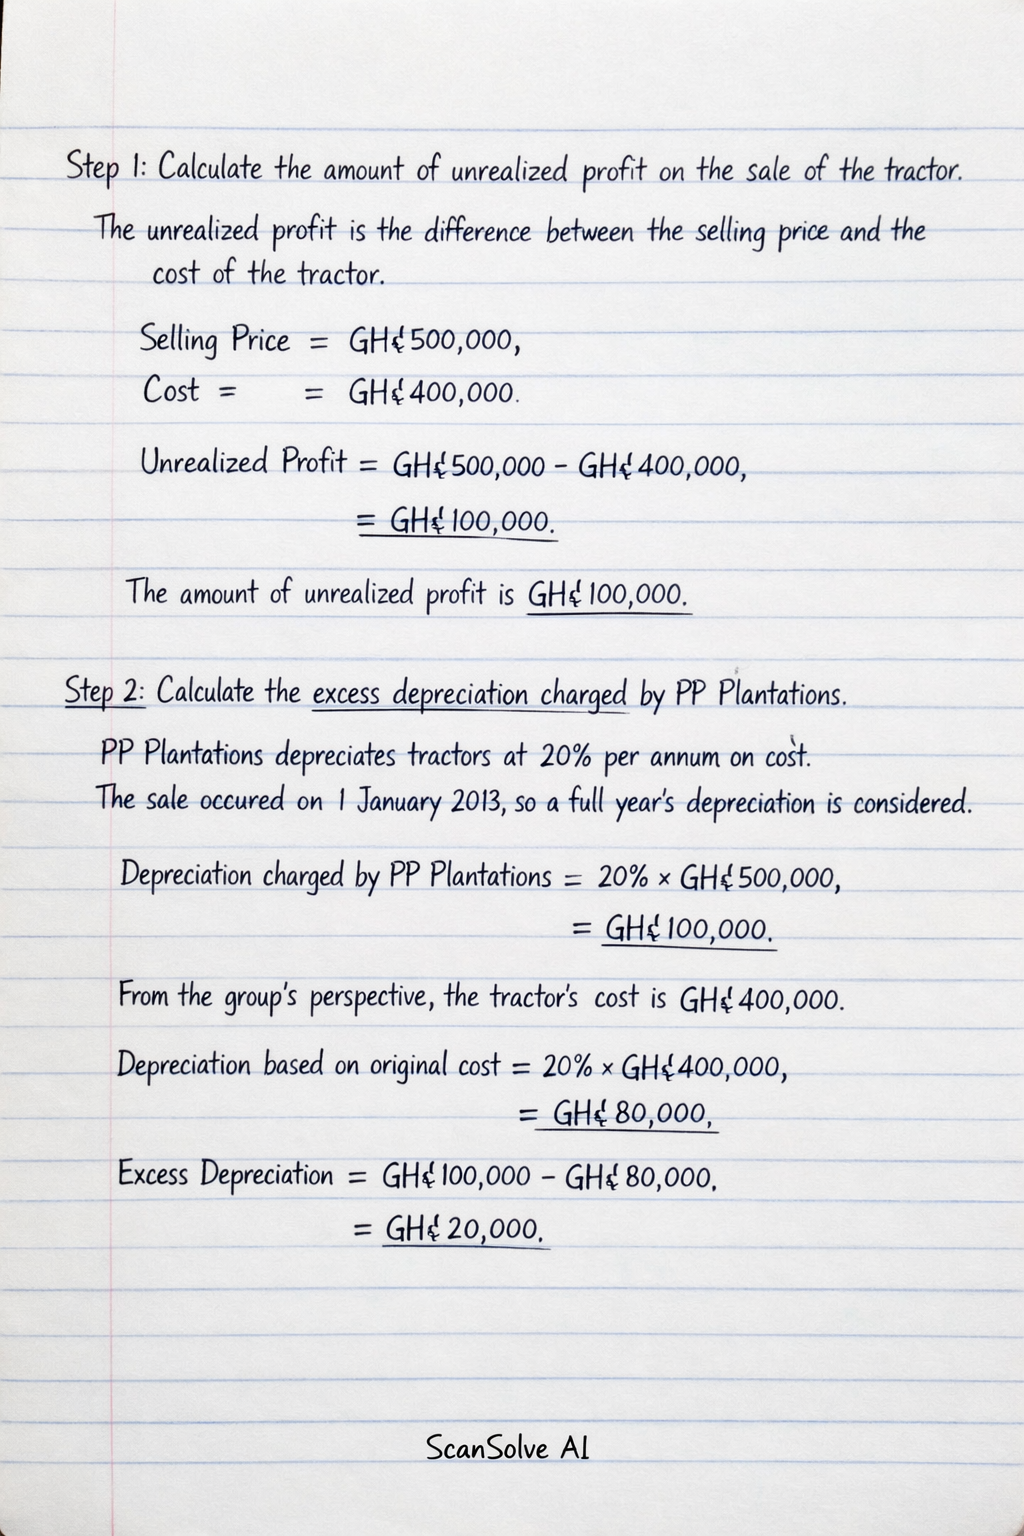 Step 1: Calculate the amount of unrealized profit on the sale of the tractor.
The unrealized profit is the difference between the selling price and the
cost of the tractor.
Selling Price = GH₵500,000,
Cost = = GH₵400,000.
Unrealized Profit = GH₵500,000 - GH₵400,000,
= GH₵100,000.
The amount of unrealized profit is GH₵100,000.
Step 2: Calculate the excess depreciation charged by PP Plantations.
PP Plantations depreciates tractors at 20% per annum on cost.
The sale occured on 1 January 2013, so a full year's depreciation is considered.
Depreciation charged by PP Plantations = 20% × GH₵500,000,
= GH₵100,000.
From the group's perspective, the tractor's cost is GH₵400,000.
Depreciation based on original cost = 20% × GH₵400,000,
= GH₵80,000,
Excess Depreciation = GH₵100,000 - GH₵80,000.
= GH₵20,000.
ScanSolve AI